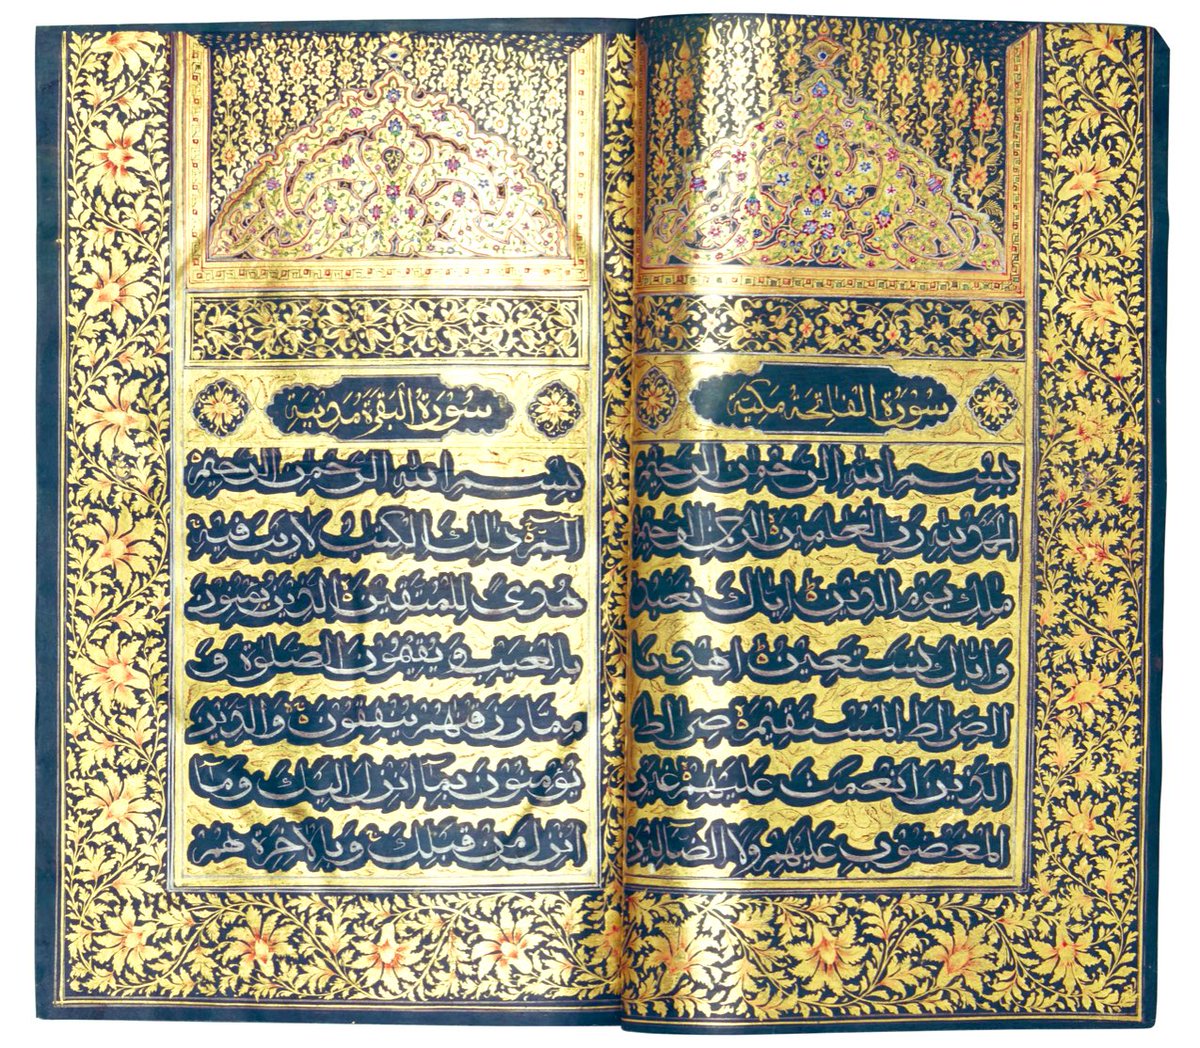 سورة الفاتحة مكية
بسم الله الرحمن الرحيم
الحمد لله رب العلمين الرحمن الرحيم
ملك يوم الدين اياك نعبد
واياك نستعين اهدنا
الصراط المستقيم صراط
الذين انعمت عليهم غير
المغضوب عليهم ولا الضالين
سورة البقرة مدنية
بسم الله الرحمن الرحيم
الم ذلك الكتب لا ريب فيه
هدى للمتقين الذين يؤمنون
بالغيب و يقيمون الصلوة و
مما رزقنهم ينفقون والذين
يؤمنون بما انزل اليك وما
انزل من قبلك وبالاخرة هم